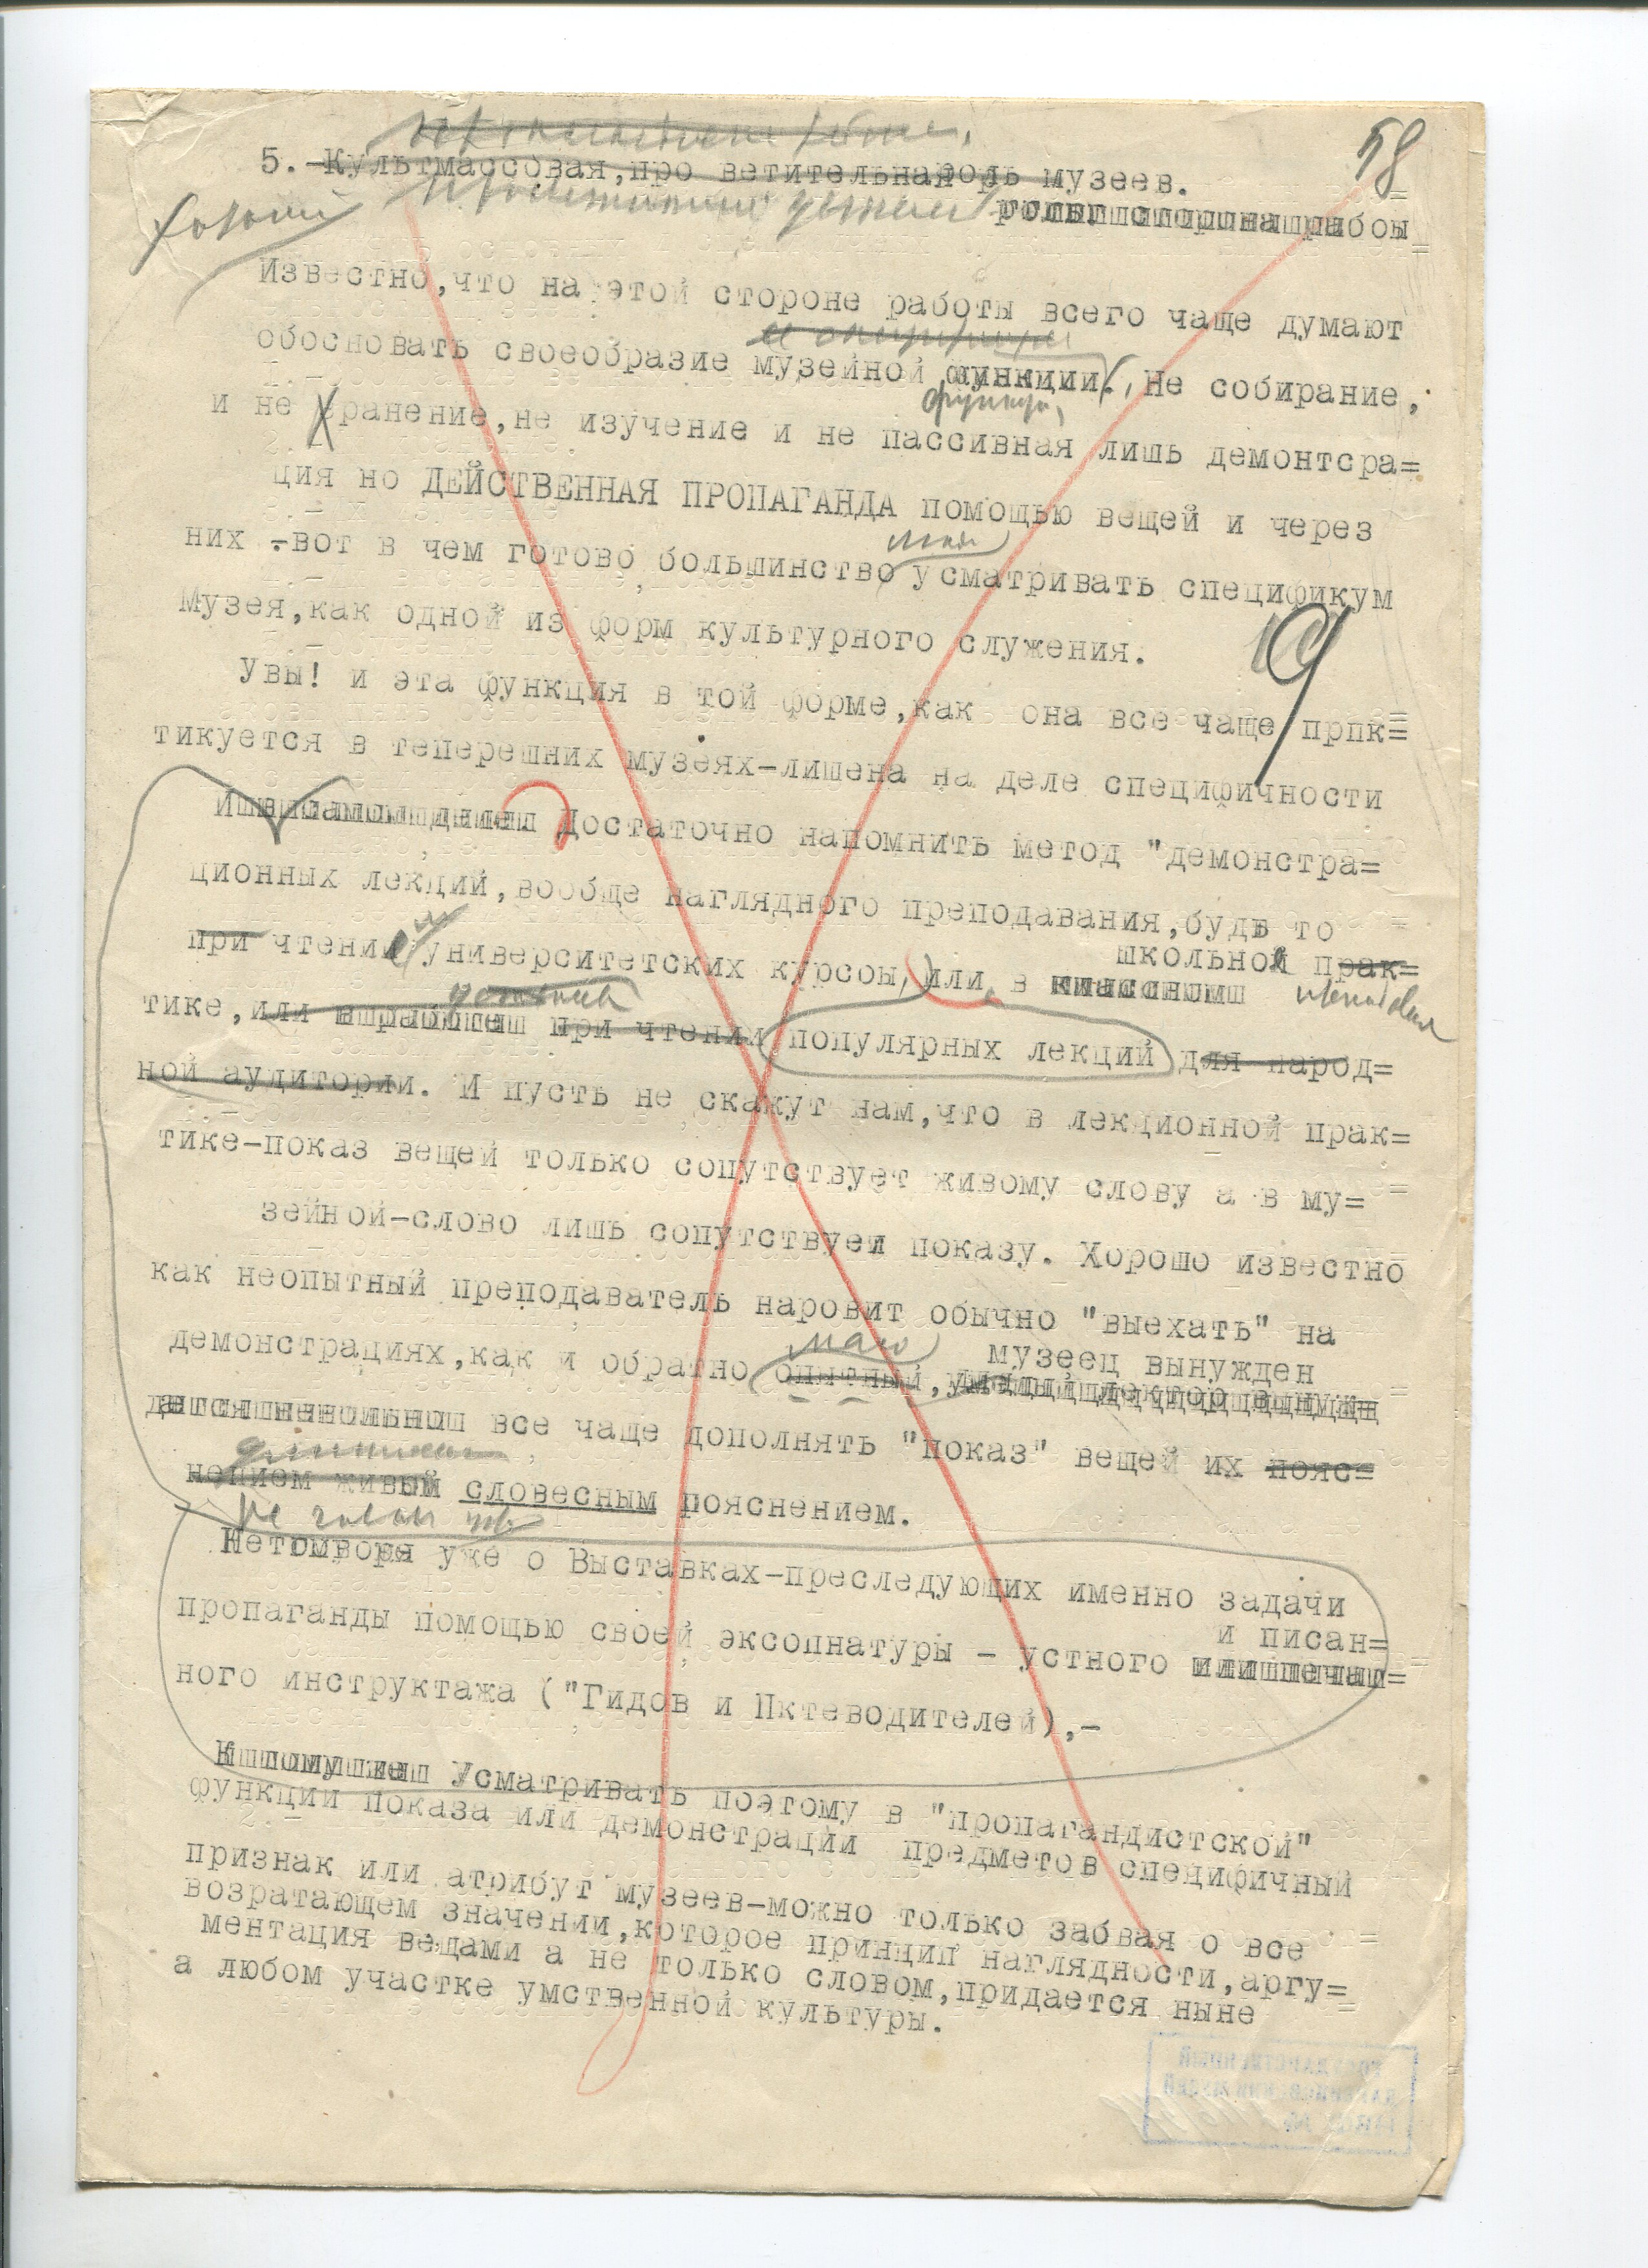 58
5.-Культмассовая,про ветительная роль музеев.
Известно,что на этой стороне работы всего чаще думают
обосновать своеобразие музейной функции. Не собирание,
функции,
и не хранение,не изучение и не пассивная лишь демонтсра=
ция но ДЕЙСТВЕННАЯ ПРОПАГАНДА помощью вещей и через
них -вот в чем готово большинство усматривать спецификум
Музея,как одной из форм культурного служения.
19
Увы! и эта функция в той форме,как она все чаще прпк=
тикуется в теперешних музеях-лишена на деле специфичности
Достаточно напомнить метод "демонстра=
ционных лекций,вообще наглядного преподавания,будь то
при чтении университетских курсоы,или в школьной прак=
тике,или при чтении популярных лекций для народ=
ной аудитории. И пусть не скажут нам,что в лекционной прак=
тике-показ вещей только сопутствует живому слову а в му=
зейной-слово лишь сопутствуеи показу. Хорошо известно
как неопытный преподаватель наровит обычно "выехать" на
демонстрациях,как и обратно опытный, музеец вынужден
все чаще дополнять "показ" вещей их пояс=
нением живый словесным пояснением.
Не говоря уже о Выставках-преследующих именно задачи
пропаганды помощью своей эксопнатуры - устного и писан=
ного инструктажа ("Гидов и Пктеводителей),-
Усматривать поэтому в "пропагандистской"
функции показа или демонстрации предметов специфичный
признак или атрибут музеев-можно только забвая о все
возратающем значении,которое принцип наглядности,аргу=
ментация вещами а не только словом,придается ныне
а любом участке умственной культуры.